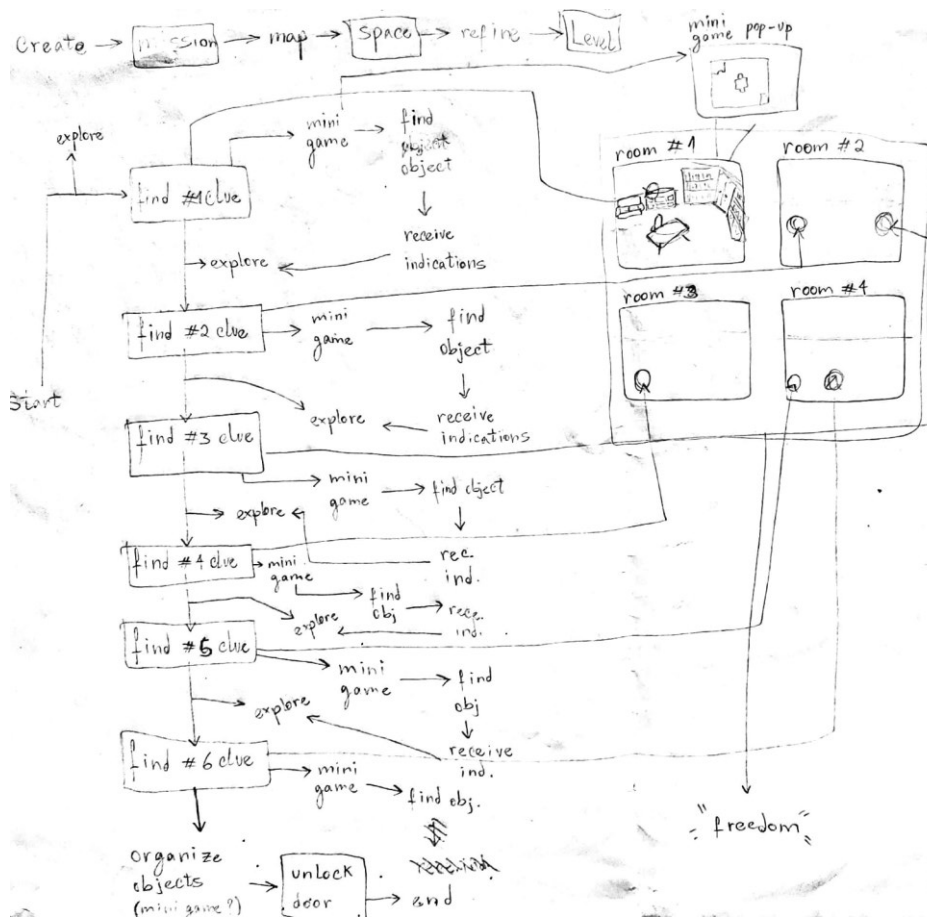 Create → mission → map → space → refine → Level
mini
game pop-up
explore
mini
game
find
object
find #1 clue
receive
indications
explore
room #1
room #2
room #3
room #4
find #2 clue
mini
game
find
object
Start
explore
receive
indications
find #3 clue
mini
game
find object
explore
find #4 clue
mini
game
rec.
ind.
find
obj
rece.
ind.
explore
find #5 clue
mini
game
find
obj
explore
receive
ind.
find #6 clue
mini
game
find obj.
"freedom"
organize
objects
(mini game?)
unlock
door
end